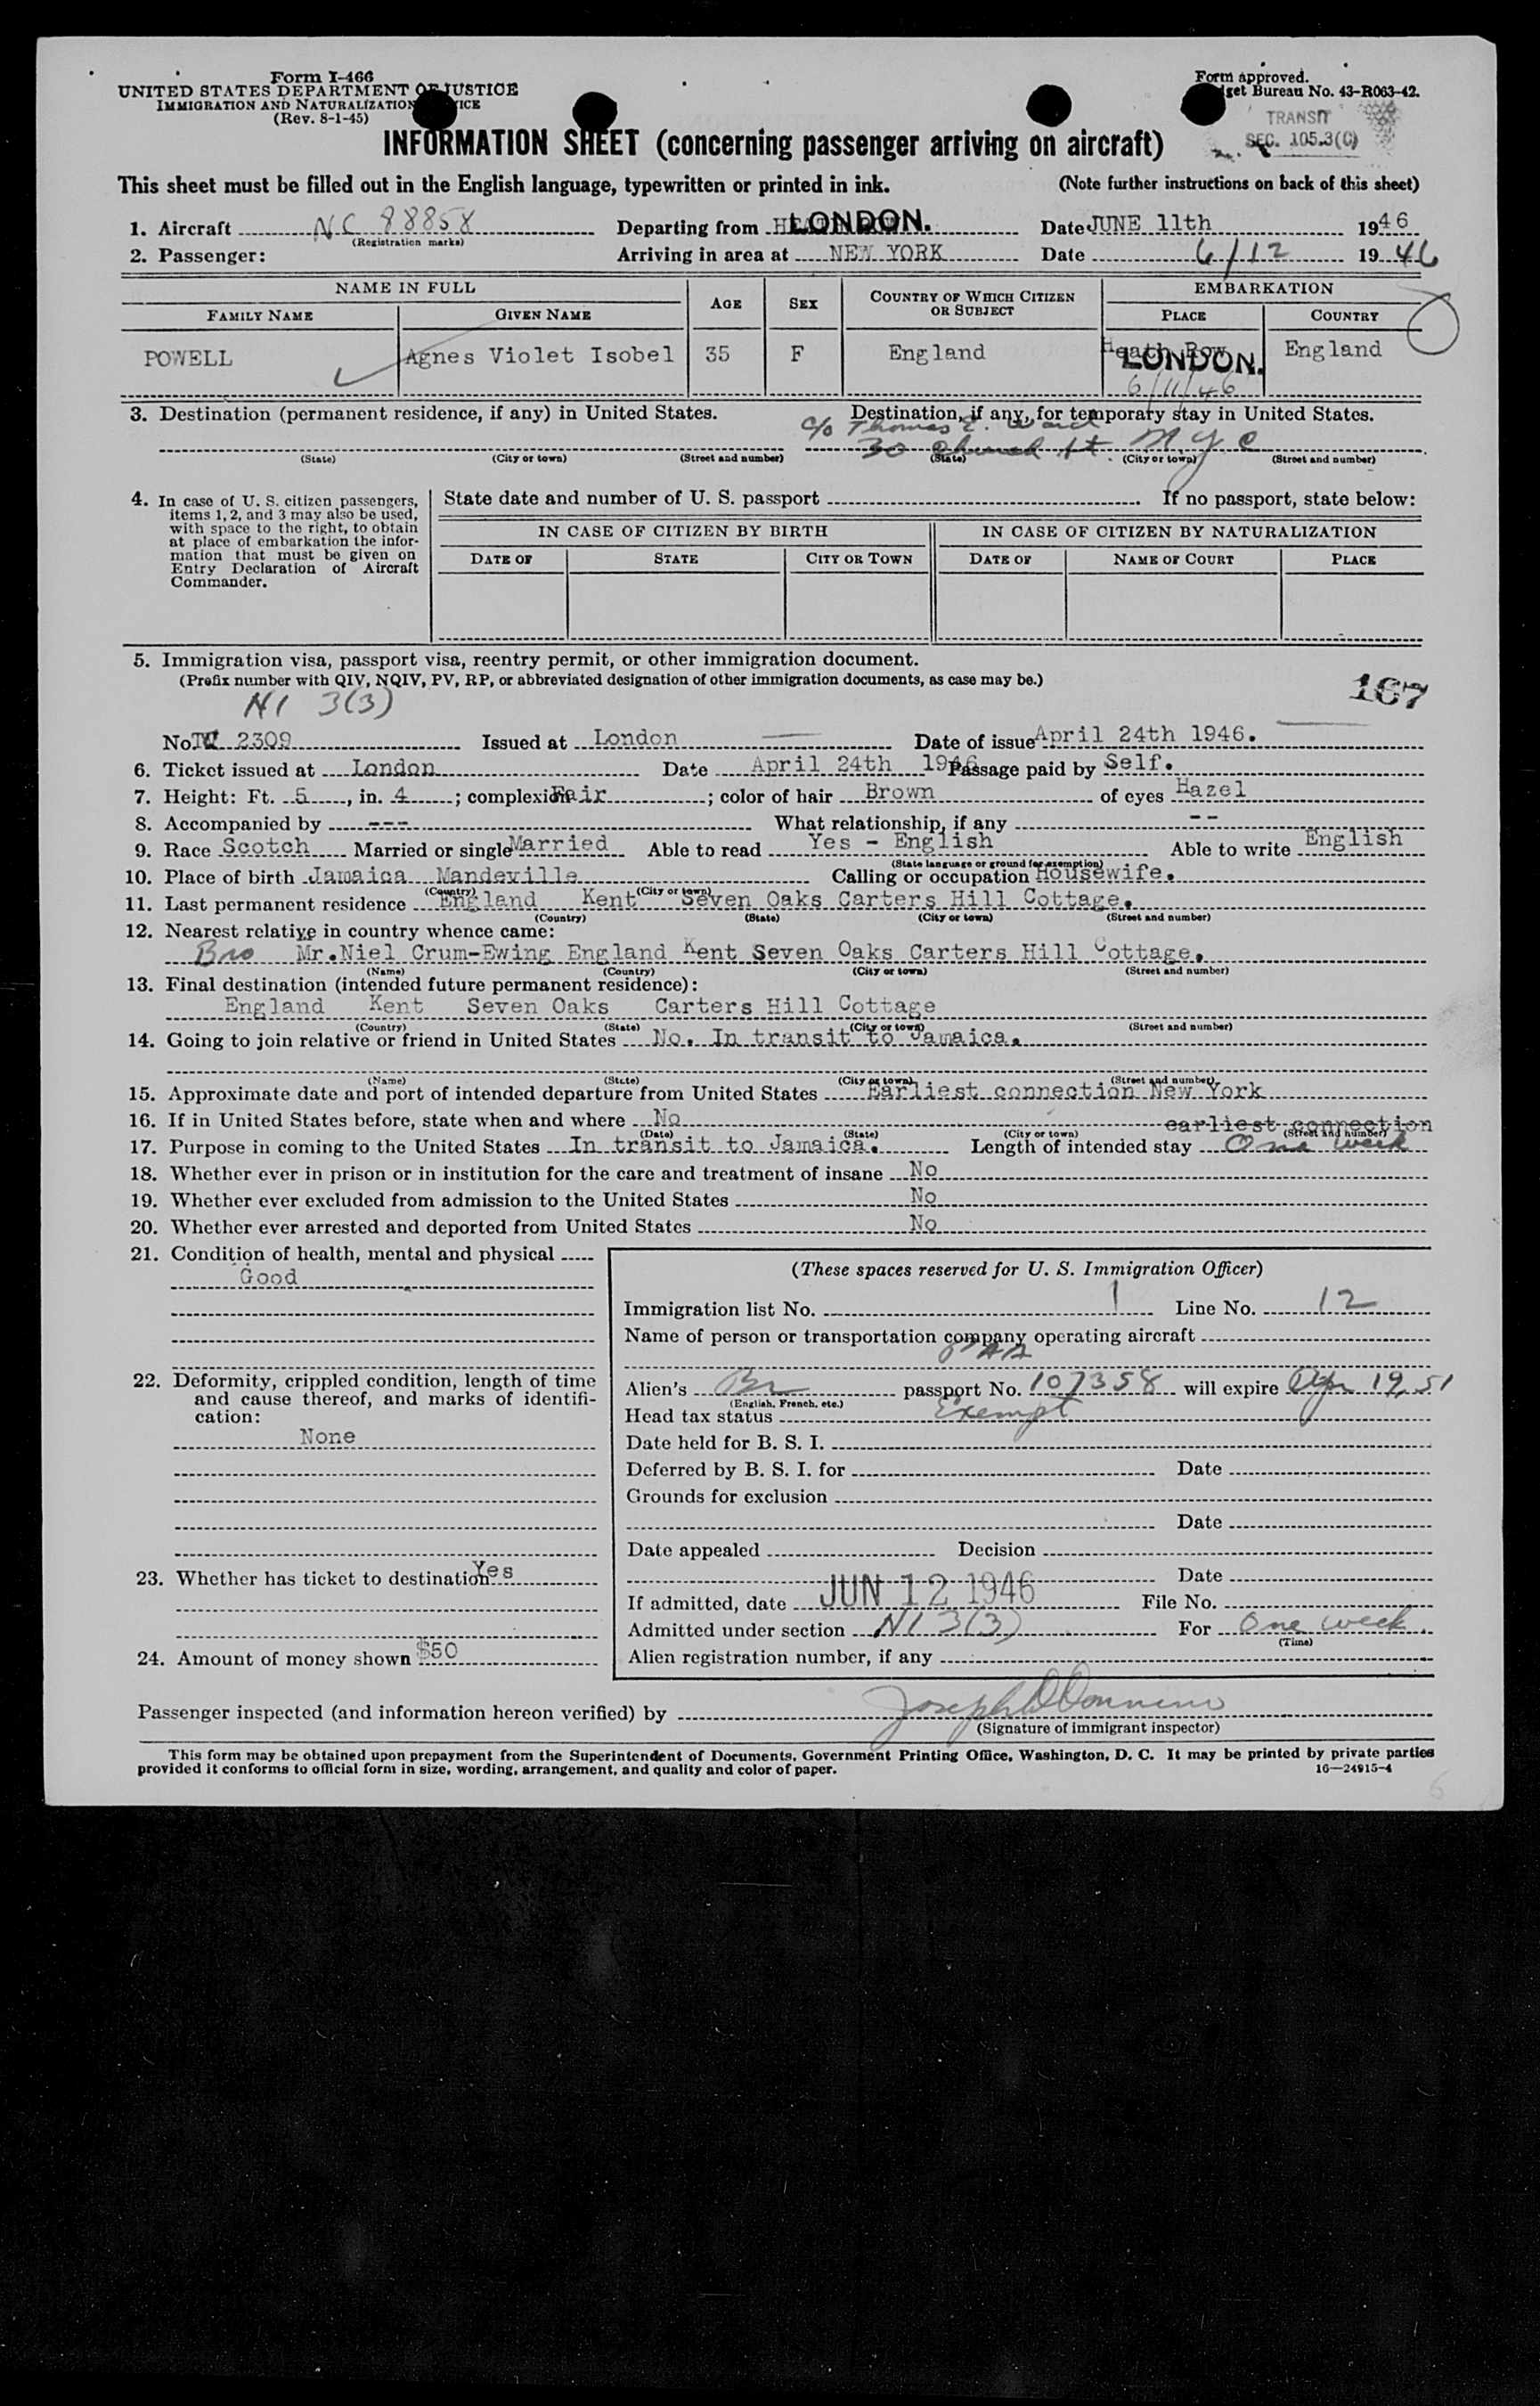 Form I-466
UNITED STATES DEPARTMENT OF JUSTICE
IMMIGRATION AND NATURALIZATION
(Rev. 8-1-45)
Form approved.
Bureau No. 43-R063-42.
TRANSIT
SEC. 105.3(C)
INFORMATION SHEET (concerning passenger arriving on aircraft)
This sheet must be filled out in the English language, typewritten or printed in ink. (Note further instructions on back of this sheet)
1. Aircraft NC 88858 Departing from LONDON. Date JUNE 11th 1946
(Registration marks)
2. Passenger: Arriving in area at NEW YORK Date 6/12 1946
NAME IN FULL AGE SEX COUNTRY OF WHICH CITIZEN OR SUBJECT EMBARKATION
FAMILY NAME GIVEN NAME PLACE COUNTRY
POWELL Agnes Violet Isobel 35 F England Heath Row LONDON. England
6/11/46
3. Destination (permanent residence, if any) in United States. Destination, if any, for temporary stay in United States.
c/o Thomas E. Ward
30 Church St N.Y.C
(State) (City or town) (Street and number) (State) (City or town) (Street and number)
4. In case of U. S. citizen passengers, items 1, 2, and 3 may also be used, with space to the right, to obtain at place of embarkation the information that must be given on Entry Declaration of Aircraft Commander.
State date and number of U. S. passport If no passport, state below:
IN CASE OF CITIZEN BY BIRTH IN CASE OF CITIZEN BY NATURALIZATION
DATE OF STATE CITY OR TOWN DATE OF NAME OF COURT PLACE
5. Immigration visa, passport visa, reentry permit, or other immigration document.
(Prefix number with QIV, NQIV, PV, RP, or abbreviated designation of other immigration documents, as case may be.)
167
NI 3(3)
No. 2309 Issued at London Date of issue April 24th 1946.
6. Ticket issued at London Date April 24th 1946 Passage paid by Self.
7. Height: Ft. 5, in. 4; complexion Fair; color of hair Brown of eyes Hazel
8. Accompanied by --- What relationship, if any --
9. Race Scotch Married or single Married Able to read Yes - English Able to write English
(State language or ground for exemption)
10. Place of birth Jamaica Mandeville Calling or occupation Housewife.
(Country) (City or town)
11. Last permanent residence England Kent Seven Oaks Carters Hill Cottage.
(Country) (State) (City or town) (Street and number)
12. Nearest relative in country whence came:
Bro Mr.Niel Crum-Ewing England Kent Seven Oaks Carters Hill Cottage.
(Name) (Country) (City or town) (Street and number)
13. Final destination (intended future permanent residence):
England Kent Seven Oaks Carters Hill Cottage
(Country) (State) (City or town) (Street and number)
14. Going to join relative or friend in United States No. In transit to Jamaica.
(Name) (State) (City or town) (Street and number)
15. Approximate date and port of intended departure from United States Earliest connection New York
16. If in United States before, state when and where No
(Date) (State) (City or town) (Street and number)
earliest connection
17. Purpose in coming to the United States In transit to Jamaica. Length of intended stay One week
18. Whether ever in prison or in institution for the care and treatment of insane No
19. Whether ever excluded from admission to the United States No
20. Whether ever arrested and deported from United States No
21. Condition of health, mental and physical
Good
22. Deformity, crippled condition, length of time and cause thereof, and marks of identification:
None
23. Whether has ticket to destination Yes
24. Amount of money shown $50
(These spaces reserved for U. S. Immigration Officer)
Immigration list No. 1 Line No. 12
Name of person or transportation company operating aircraft
Alien's Br passport No. 107358 will expire Apr 19 51
(English, French, etc.)
Head tax status Exempt
Date held for B. S. I.
Deferred by B. S. I. for Date
Grounds for exclusion
Date
Date appealed Decision
Date
If admitted, date JUN 12 1946 File No.
Admitted under section NI 3(3) For One week
(Time)
Alien registration number, if any
Passenger inspected (and information hereon verified) by
(Signature of immigrant inspector)
This form may be obtained upon prepayment from the Superintendent of Documents, Government Printing Office, Washington, D. C. It may be printed by private parties
provided it conforms to official form in size, wording, arrangement, and quality and color of paper. 16—24915-4